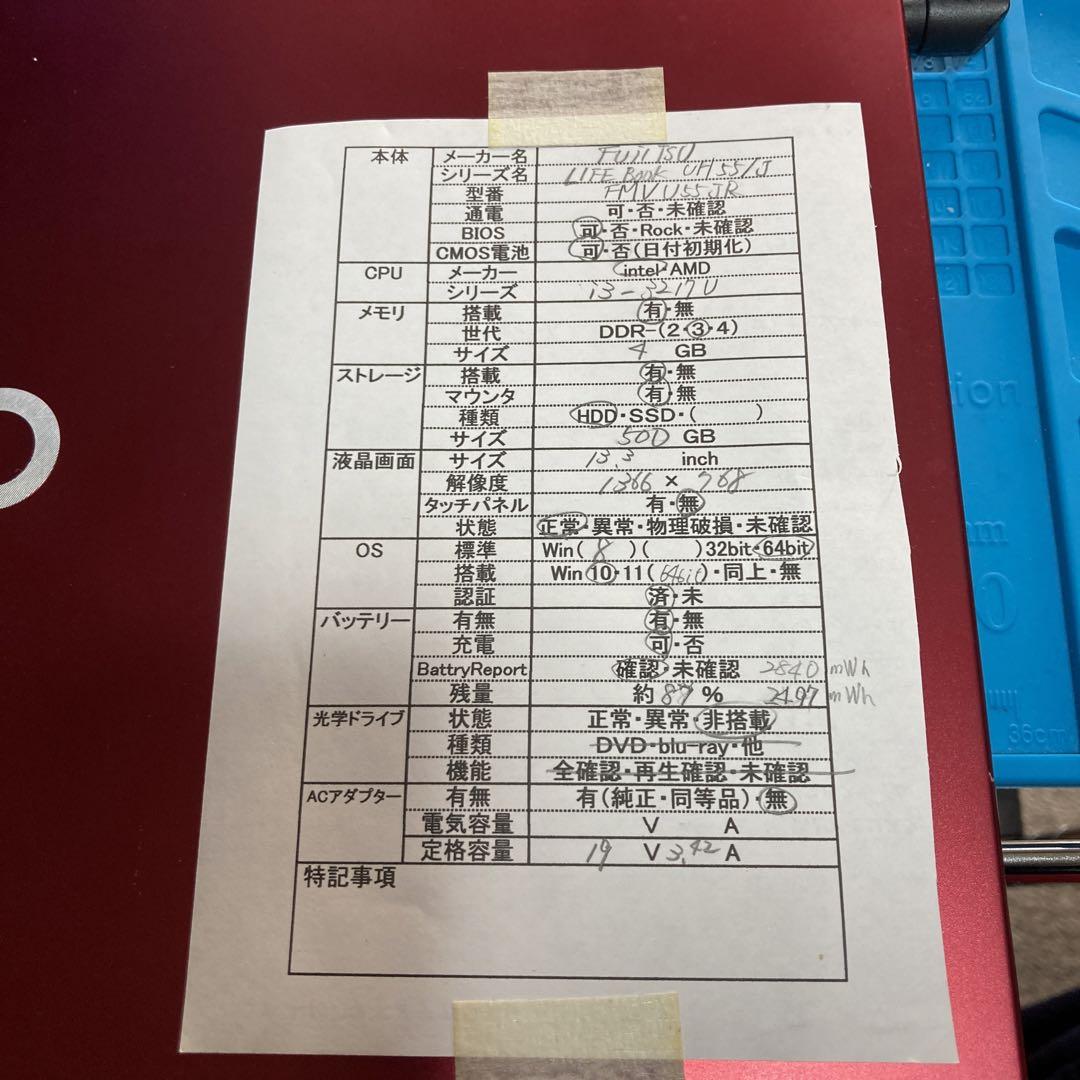 本体 メーカー名 FUJITSU
シリーズ名 LIFE Book UH55/J
型番 FMVU55JR
通電 可・否・未確認
BIOS 可・否・Rock・未確認
CMOS電池 可・否(日付初期化)
CPU メーカー intel・AMD
シリーズ i3-3217U
メモリ 搭載 有・無
世代 DDR-(2・3・4)
サイズ 4 GB
ストレージ 搭載 有・無
マウンタ 有・無
種類 HDD・SSD・( )
サイズ 500 GB
液晶画面 サイズ 13.3 inch
解像度 1366 × 768
タッチパネル 有・無
状態 正常・異常・物理破損・未確認
OS 標準 Win( 8 )( )32bit・64bit
搭載 Win 10・11(64bit)・同上・無
認証 済・未
バッテリー 有無 有・無
充電 可・否
BattryReport 確認・未確認 2840 mWh
残量 約87 % 2497 mWh
光学ドライブ 状態 正常・異常・非搭載
種類 DVD・blu-ray・他
機能 全確認・再生確認・未確認
ACアダプター 有無 有(純正・同等品)・無
電気容量 V A
定格容量 19 V 3.42 A
特記事項
36cm